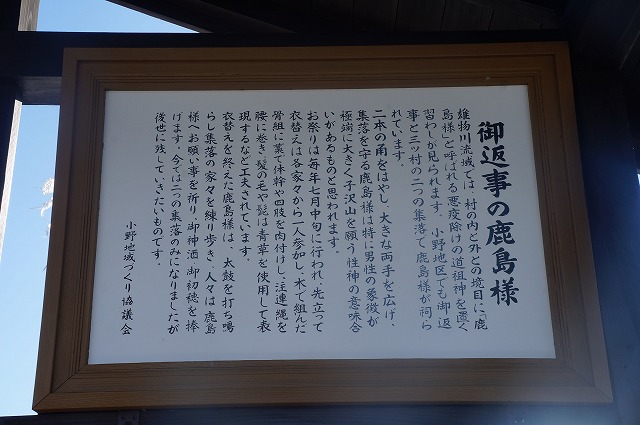 御返事の鹿島様
雄物川流域では、村の内と外との境目に「鹿
島様」と呼ばれる悪疫除けの道祖神を置く
習わしが見られます。小野地区でも御返
事と三ツ村の二つの集落で、鹿島様が祠ら
れています。
二本の角をはやし、大きな両手を広げ、
集落を守る鹿島様は特に男性の象徴が
極端に大きく、子沢山を願う性神の意味合
いがあるものと思われます。
お祭りは毎年七月中旬に行われ、先立って
衣替えは各家から一人参加し、木で組んだ
骨組に藁で体幹や四肢を肉付けし、注連縄を
腰に巻き、髪の毛や髭は青草を使用して表
現するなど工夫されています。
衣替えを終えた鹿島様は、太鼓を打ち鳴
らし集落の家々を練り歩き、人々は鹿島
様へお願い事を祈り、御神酒、御初穂を捧
げます。今では二つの集落のみになりましたが
後世に残していきたいものです。
小野地域づくり協議会